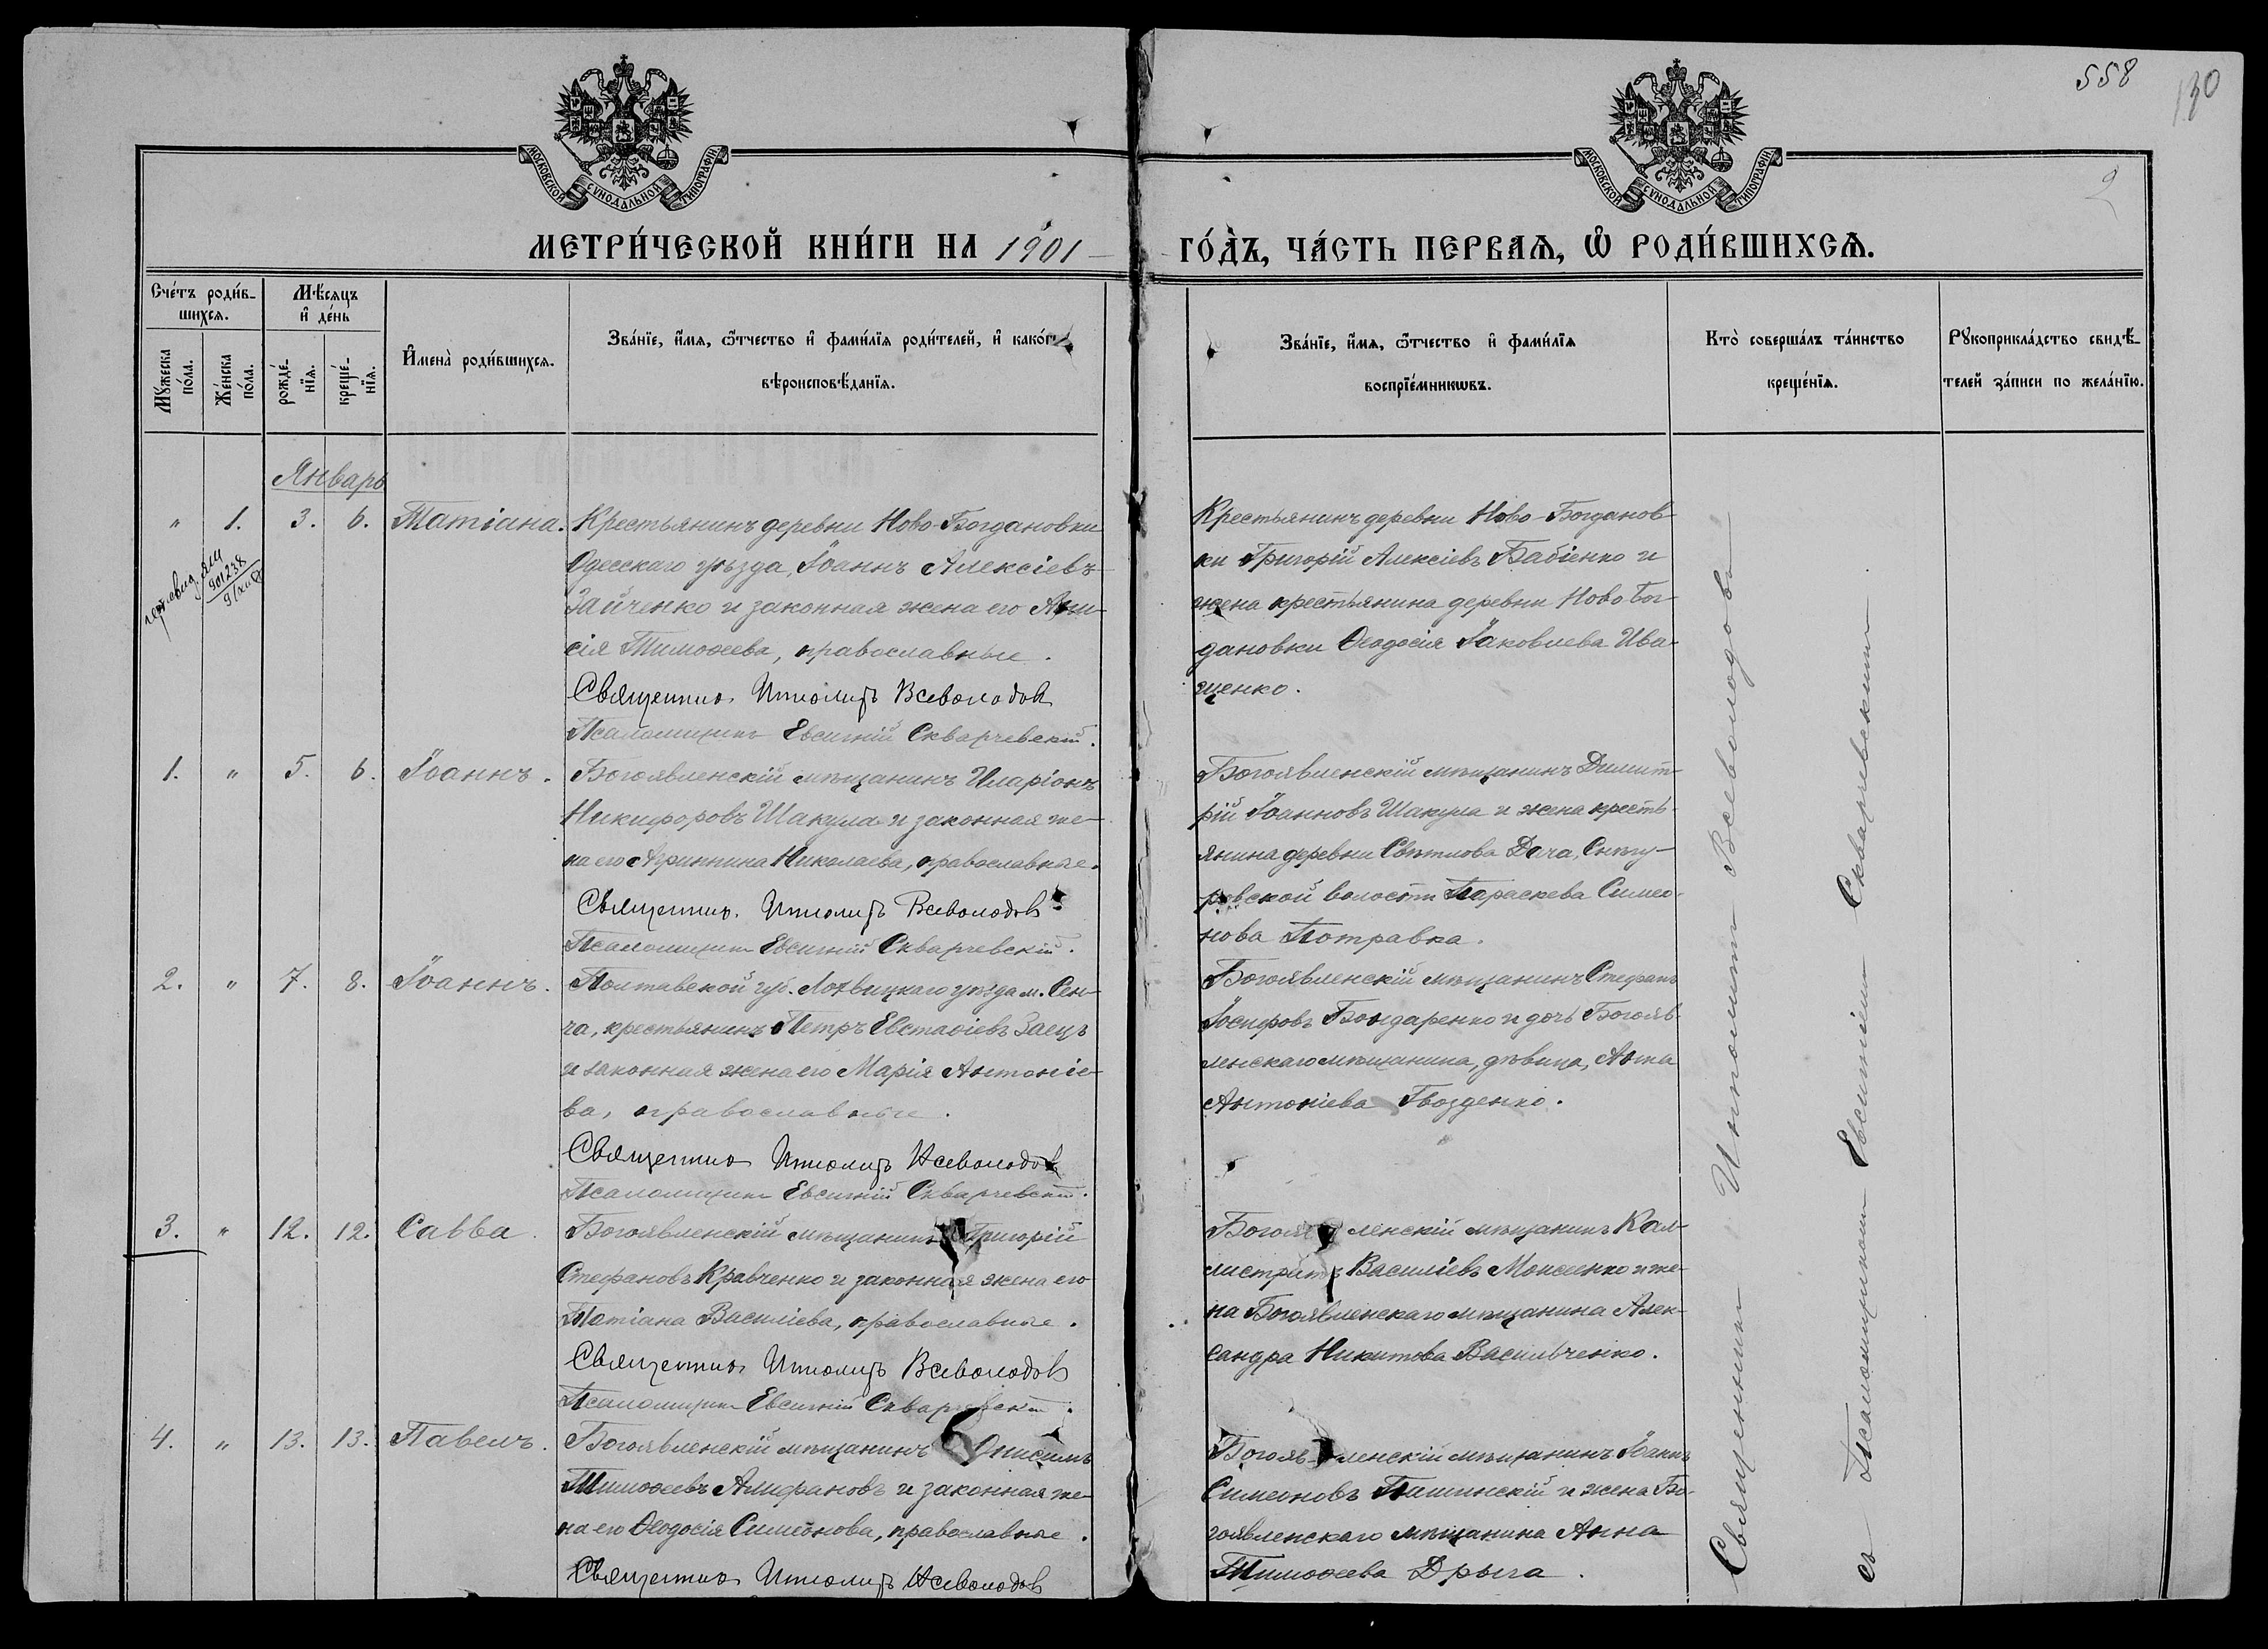 558
130
2
МОСКОВСКОЙ СѴНОДАЛЬНОЙ ТИПОГРАФІИ
МОСКОВСКОЙ СѴНОДАЛЬНОЙ ТИПОГРАФІИ
МЕТРИ́ЧЕСКОЙ КНИ́ГИ НА 1901 ГО́ДЪ, ЧА́СТЬ ПЕРВАѦ, Ѽ РОДИ́ВШИХСѦ.
Сче́тъ роди́в-
шихсѧ.
Му́жеска по́ла.
Же́нска по́ла.
Мѣ́сѧцъ
и҆ де́нь
рожде́-
нїѧ.
креще́-
нїѧ.
И҆мена̀ роди́вшихсѧ.
Зва́нїе, и҆́мѧ, ѻ҆́тчество и҆ фами́лїѧ роди́телей, и҆ како́гѡ
вѣроисповѣ́данїѧ.
Зва́нїе, и҆́мѧ, ѻ҆́тчество и҆ фами́лїѧ
воспрїе́мникѡвъ.
Кто̀ соверша́лъ та́инство
креще́нїѧ.
Рꙋкоприкла́дство свидѣ́-
телей за́писи по жела́нїю.
Январь
" 1. 3. 6. Татіана.
Крестьянинъ деревни Ново-Богдановки
Одесскаго уѣзда, Іоаннъ Алексіевъ
Зайченко и законная жена его Ани-
сія Тимоѳеева, православные.
Священник Ипполитъ Всеволодов
Псаломщикъ Евсигній Скварчевскій.
Крестьянинъ деревни Ново-Богданов-
ки Григорій Алексіевъ Бабіенко и
жена крестьянина деревни Ново Бог-
дановки Ѳеодосія Іаковлева Ива-
щенко.
901238
1. " 5. 6. Іоаннъ.
Богоявленскій мѣщанинъ Иларіонъ
Никифоровъ Шакула и законная же-
на его Агриппина Николаева, православные.
Священник Ипполитъ Всеволодов
Псаломщикъ Евсигній Скварчевскій.
Богоявленскій мѣщанинъ Димит-
рій Іоанновъ Шакула и жена кресть-
янина деревни Свѣтлова Дача, Снѣгу-
ровской волости Параскева Симео-
нова Потравка.
2. " 7. 8. Іоаннъ.
Полтавской губ. Лохвицкаго уѣзда м. Сен-
ча, крестьянинъ Петръ Евстаѳіевъ Заецъ
и законная жена его Марія Антоніе-
ва, православные.
Священник Ипполитъ Всеволодов
Псаломщикъ Евсигній Скварчевскій.
Богоявленскій мѣщанинъ Стефанъ
Іосифовъ Бондаренко и дочь Богояв-
ленскаго мѣщанина, дѣвица, Анна
Антоніева Гвозденко.
3. " 12. 12. Савва.
Богоявленскій мѣщанинъ Григорій
Стефановъ Кравченко и законная жена его
Татіана Василіева, православные.
Священник Ипполитъ Всеволодов
Псаломщикъ Евсигній Скварчевскій.
Богоявленскій мѣщанинъ Кал-
листратъ Василіевъ Моисеенко и же-
на Богоявленскаго мѣщанина Алек-
сандра Никитова Васильченко.
4. " 13. 13. Павелъ.
Богоявленскій мѣщанинъ Онисимъ
Тимоѳеевъ Алифановъ и законная же-
на его Ѳеодосія Симеонова, православные.
Священник Ипполитъ Всеволодов
Богоявленскій мѣщанинъ Іоаннъ
Симеоновъ Пашинскій и жена Бо-
гоявленскаго мѣщанина Анна
Тимоѳеева Дрыга.
Священникъ Ипполитъ Всеволодовъ
съ Псаломщикомъ Евсигніемъ Скварчевскимъ